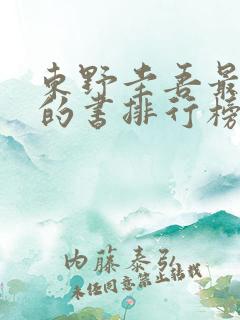 東野圭吾最
的书排行榜
内藤泰弘
未经同意禁止转载